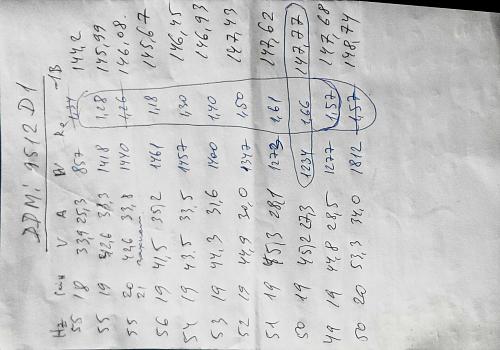 DDMi 9512 D1
Hz сек V A W -1B
55 18 33,9 25,3 857 144,2
55 19 42,6 33,3 1418 1,28 145,99
55 20 42,6 33,8 1440 1,26 146,08
21
56 19 41,5 35,2 1461 1,18 145,67
54 19 43,5 33,5 1457 1,30 146,45
53 19 44,3 31,6 1400 1,40 146,93
52 19 44,9 30,0 1347 1,50 147,43
51 19 45,3 28,1 1273 1,61 147,62
50 19 45,2 27,3 1234 1,66 147,77
49 19 44,8 28,5 1277 1,57 147,68
50 20 53,3 34,0 1812 1,57 148,74